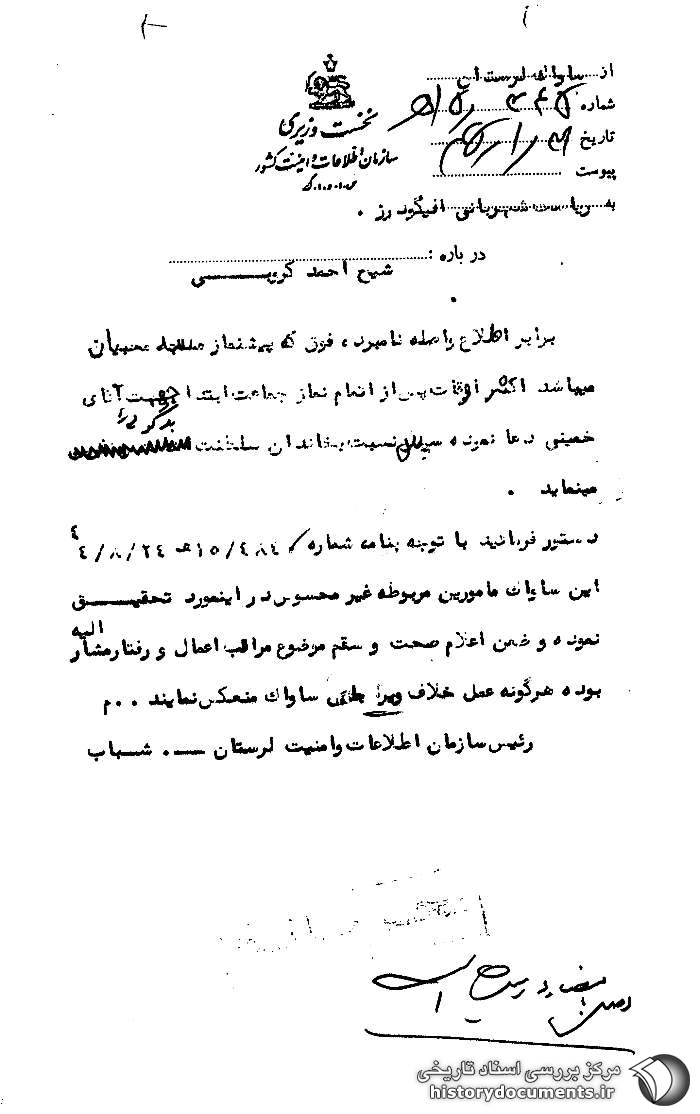 از ساواک لرستان
شماره
تاریخ
پیوست
نخست وزیری
سازمان اطلاعات و امنیت کشور
س.ا.و.ا.ک
به ریاست شهربانی الیگودرز .
درباره :
شیخ احمد
برابر اطلاع واصله نامبرده فوق که پیشنماز محله
میباشد اکثر اوقات پس از اتمام نماز جماعت ابتدا جهت آقای
بدگوئی
خمینی دعا نموده سپس نسبت بخاندان سلطنت
مینماید .
دستور فرمائید با توجه بنامه شماره ۱۵/۴۸۴ هـ ۴۴/۸/۲۴
این ساواک مامورین مربوطه غیر محسوس در اینمورد تحقیق
الیه
نموده و ضمن اعلام صحت و سقم موضوع مراقب اعمال و رفتار مشار
بوده هرگونه عمل خلاف ساواک منعکس نمایند . . م
رئیس سازمان اطلاعات وامنیت لرستان ــ . شهاب
مرکز بررسی اسناد تاریخی
historydocuments.ir